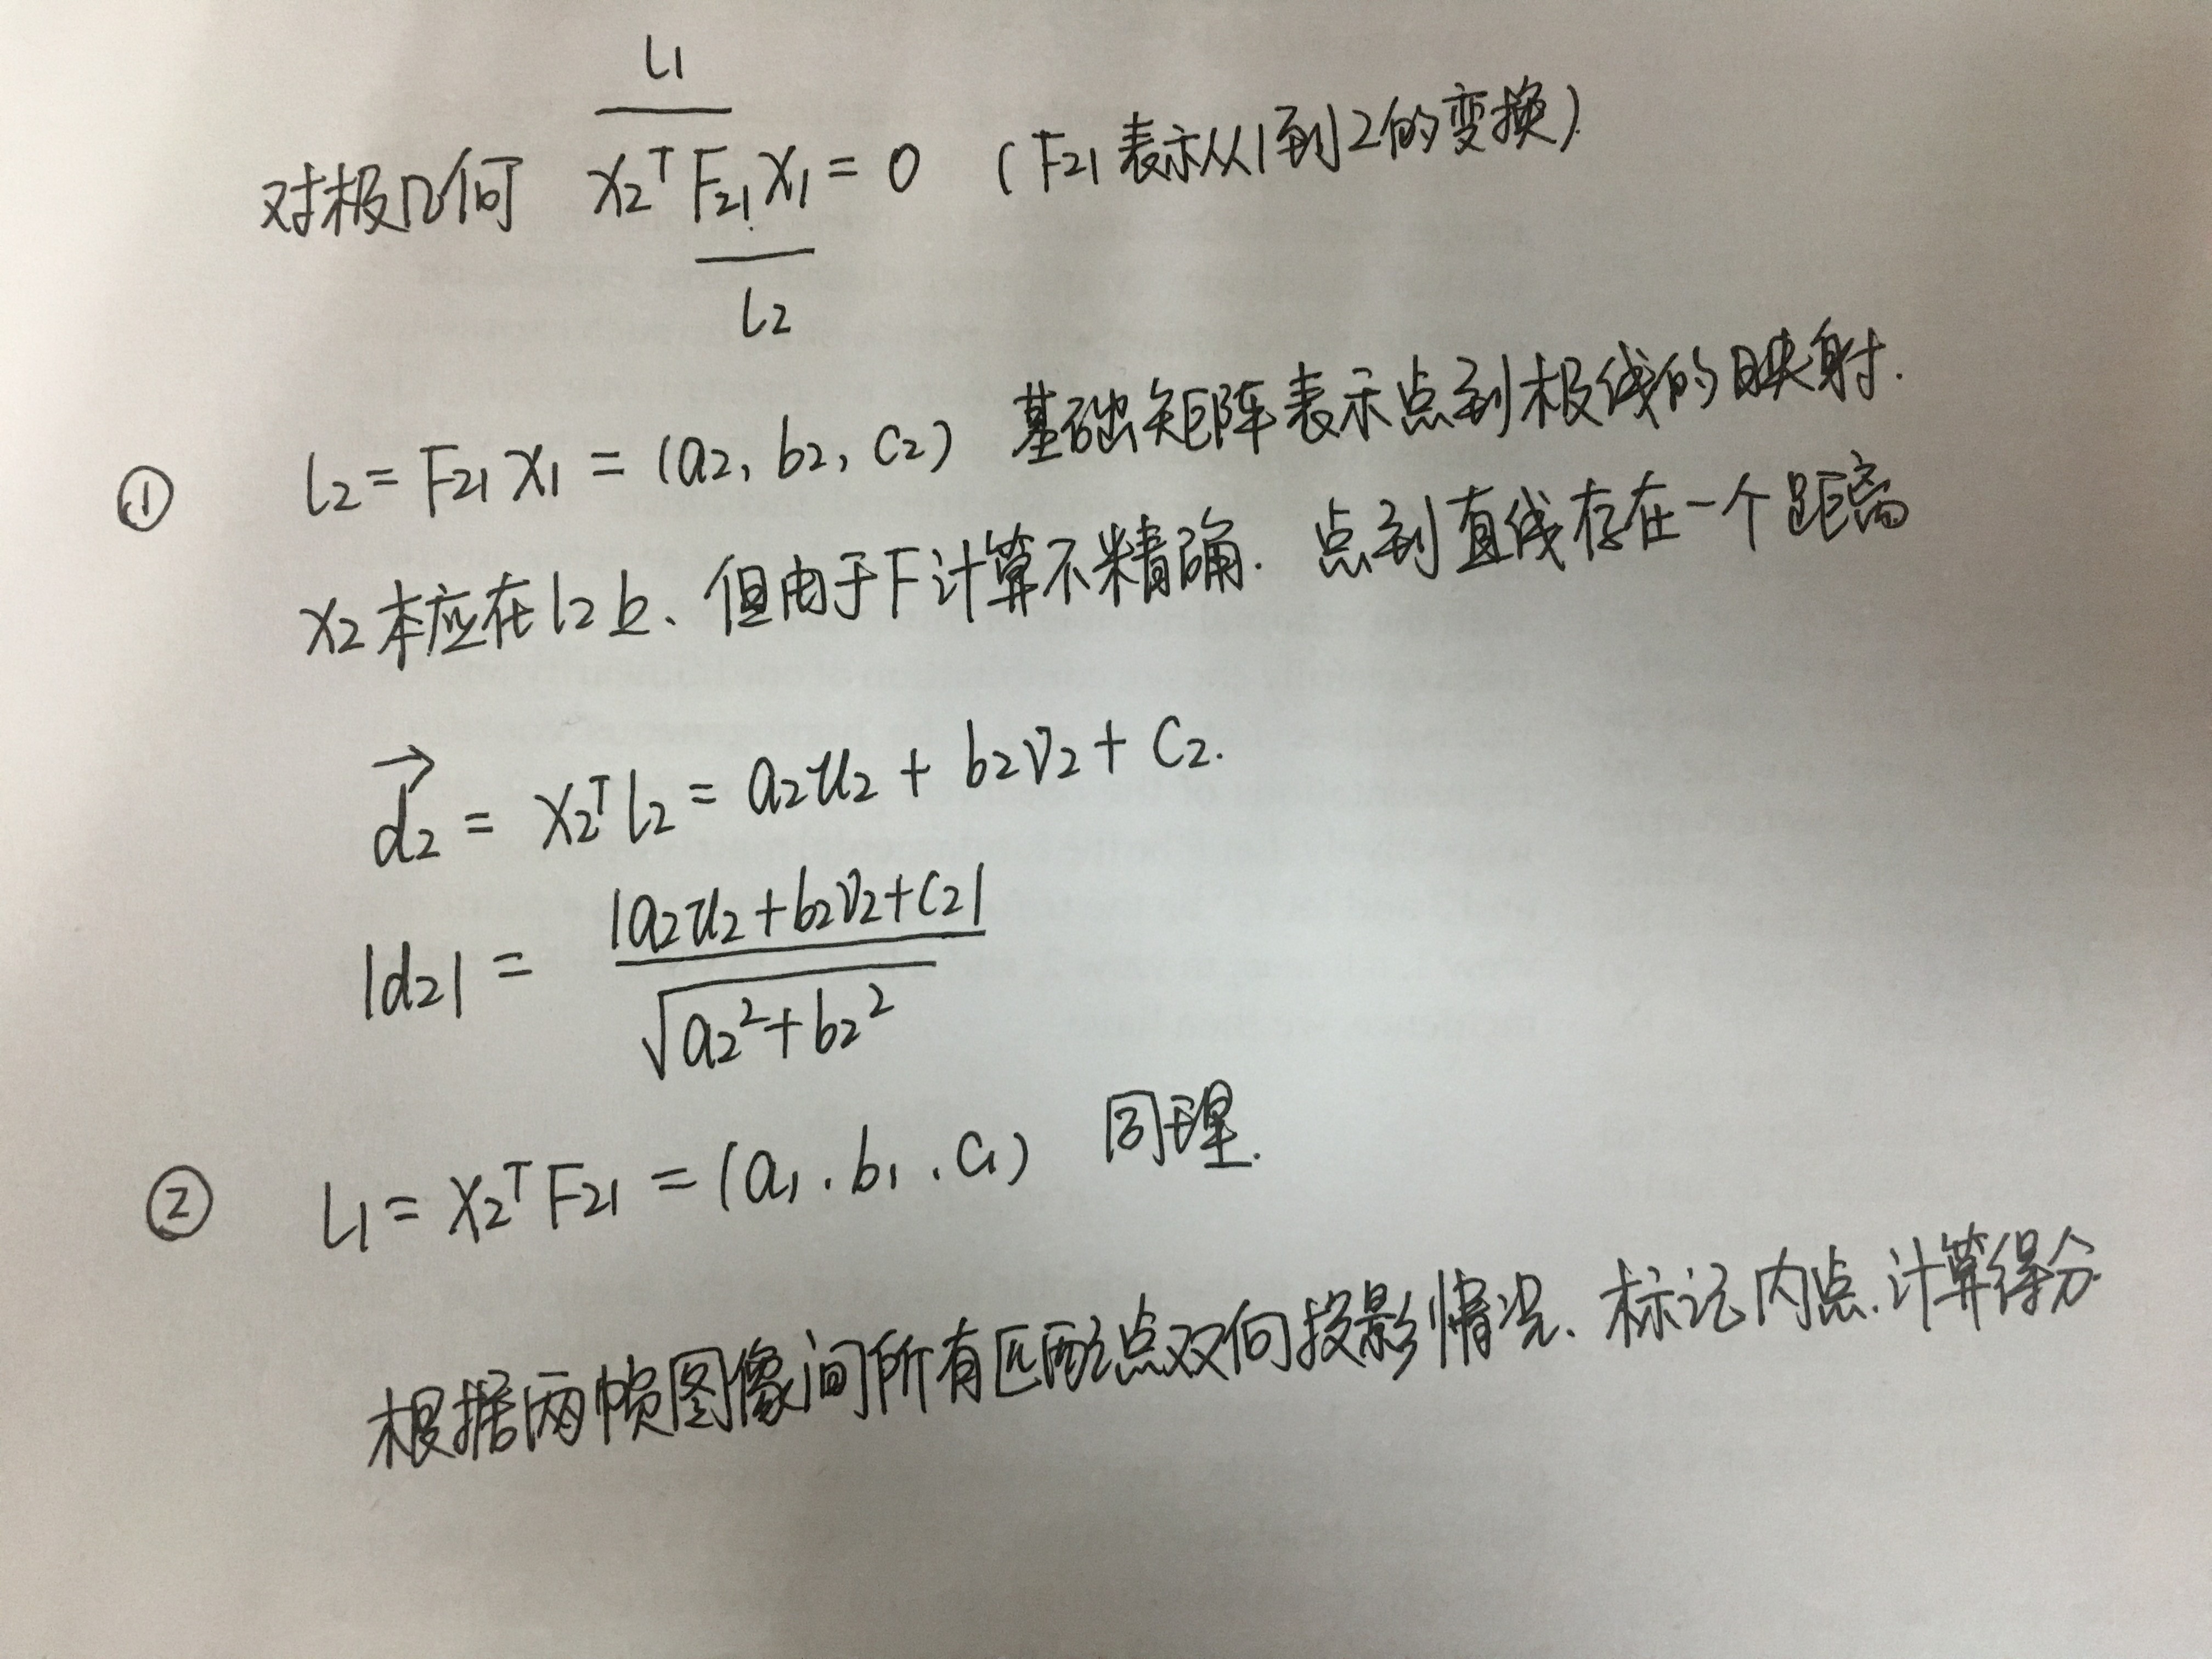 l1
对极几何 x2ᵀ F21 x1 = 0 (F21 表示从1到2的变换).
l2
① l2 = F21 x1 = (a2, b2, c2) 基础矩阵表示点到极线的映射.
x2本应在l2上、但由于F计算不精确. 点到直线存在一个距离
→d2 = x2ᵀ l2 = a2u2 + b2v2 + c2.
|d2| = |a2u2+b2v2+c2| / √(a2²+b2²)
② l1 = x2ᵀ F21 = (a1. b1. c1) 同理.
根据两帧图像间所有匹配点双向投影情况、标记内点.计算得分.